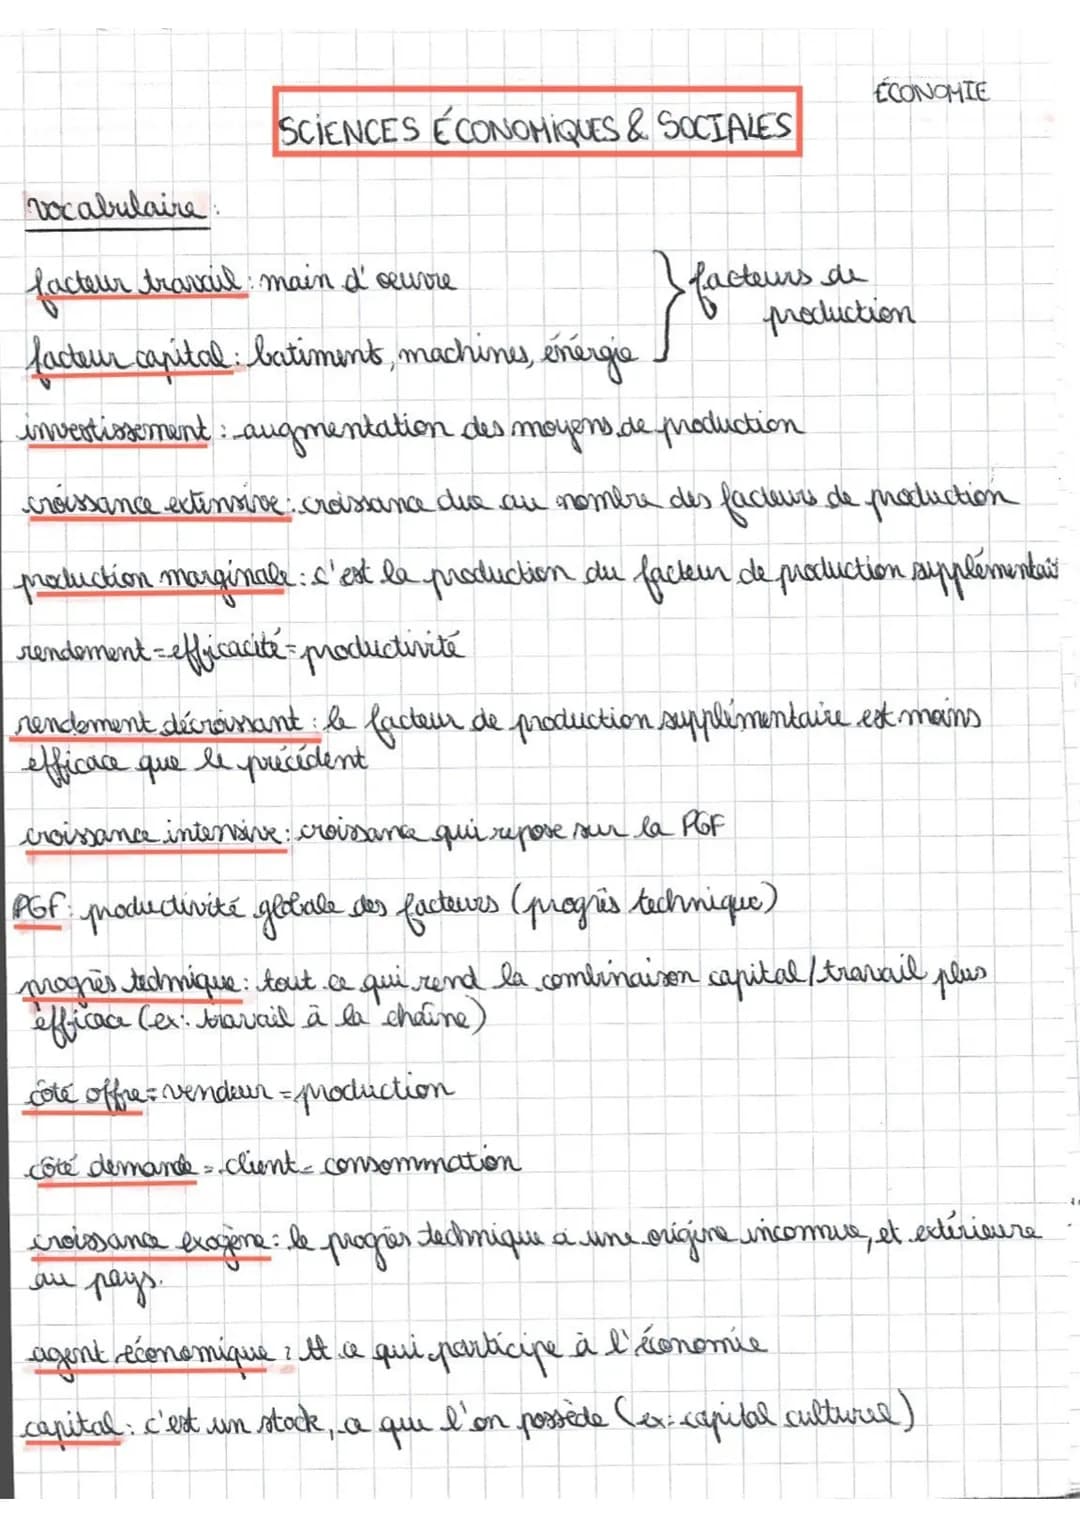 ÉCONOMIE
SCIENCES ÉCONOMIQUES & SOCIALES
vocabulaire :
facteur travail : main d'œuvre
facteurs de
production
facteur capital : batiments, machines, énergie
investissement : augmentation des moyens de production
croissance extensive : croissance due au nombre des facteurs de production
production marginale : c'est la production du facteur de production supplémentair
rendement = efficacité = productivité
rendement décroissant : le facteur de production supplémentaire est moins
efficace que le précédent
croissance intensive : croissance qui repose sur la PGF
PGF : productivité globale des facteurs (progrès technique)
progrès technique : tout ce qui rend la combinaison capital/travail plus
efficace (ex: travail à la chaîne)
côté offre = vendeur = production
côté demande = client = consommation
croissance exogène : le progrès technique a une origine inconnue, et extérieure
au pays.
agent économique : tt ce qui participe à l'économie
capital : c'est un stock, ce que l'on possède (ex: capital culturel)